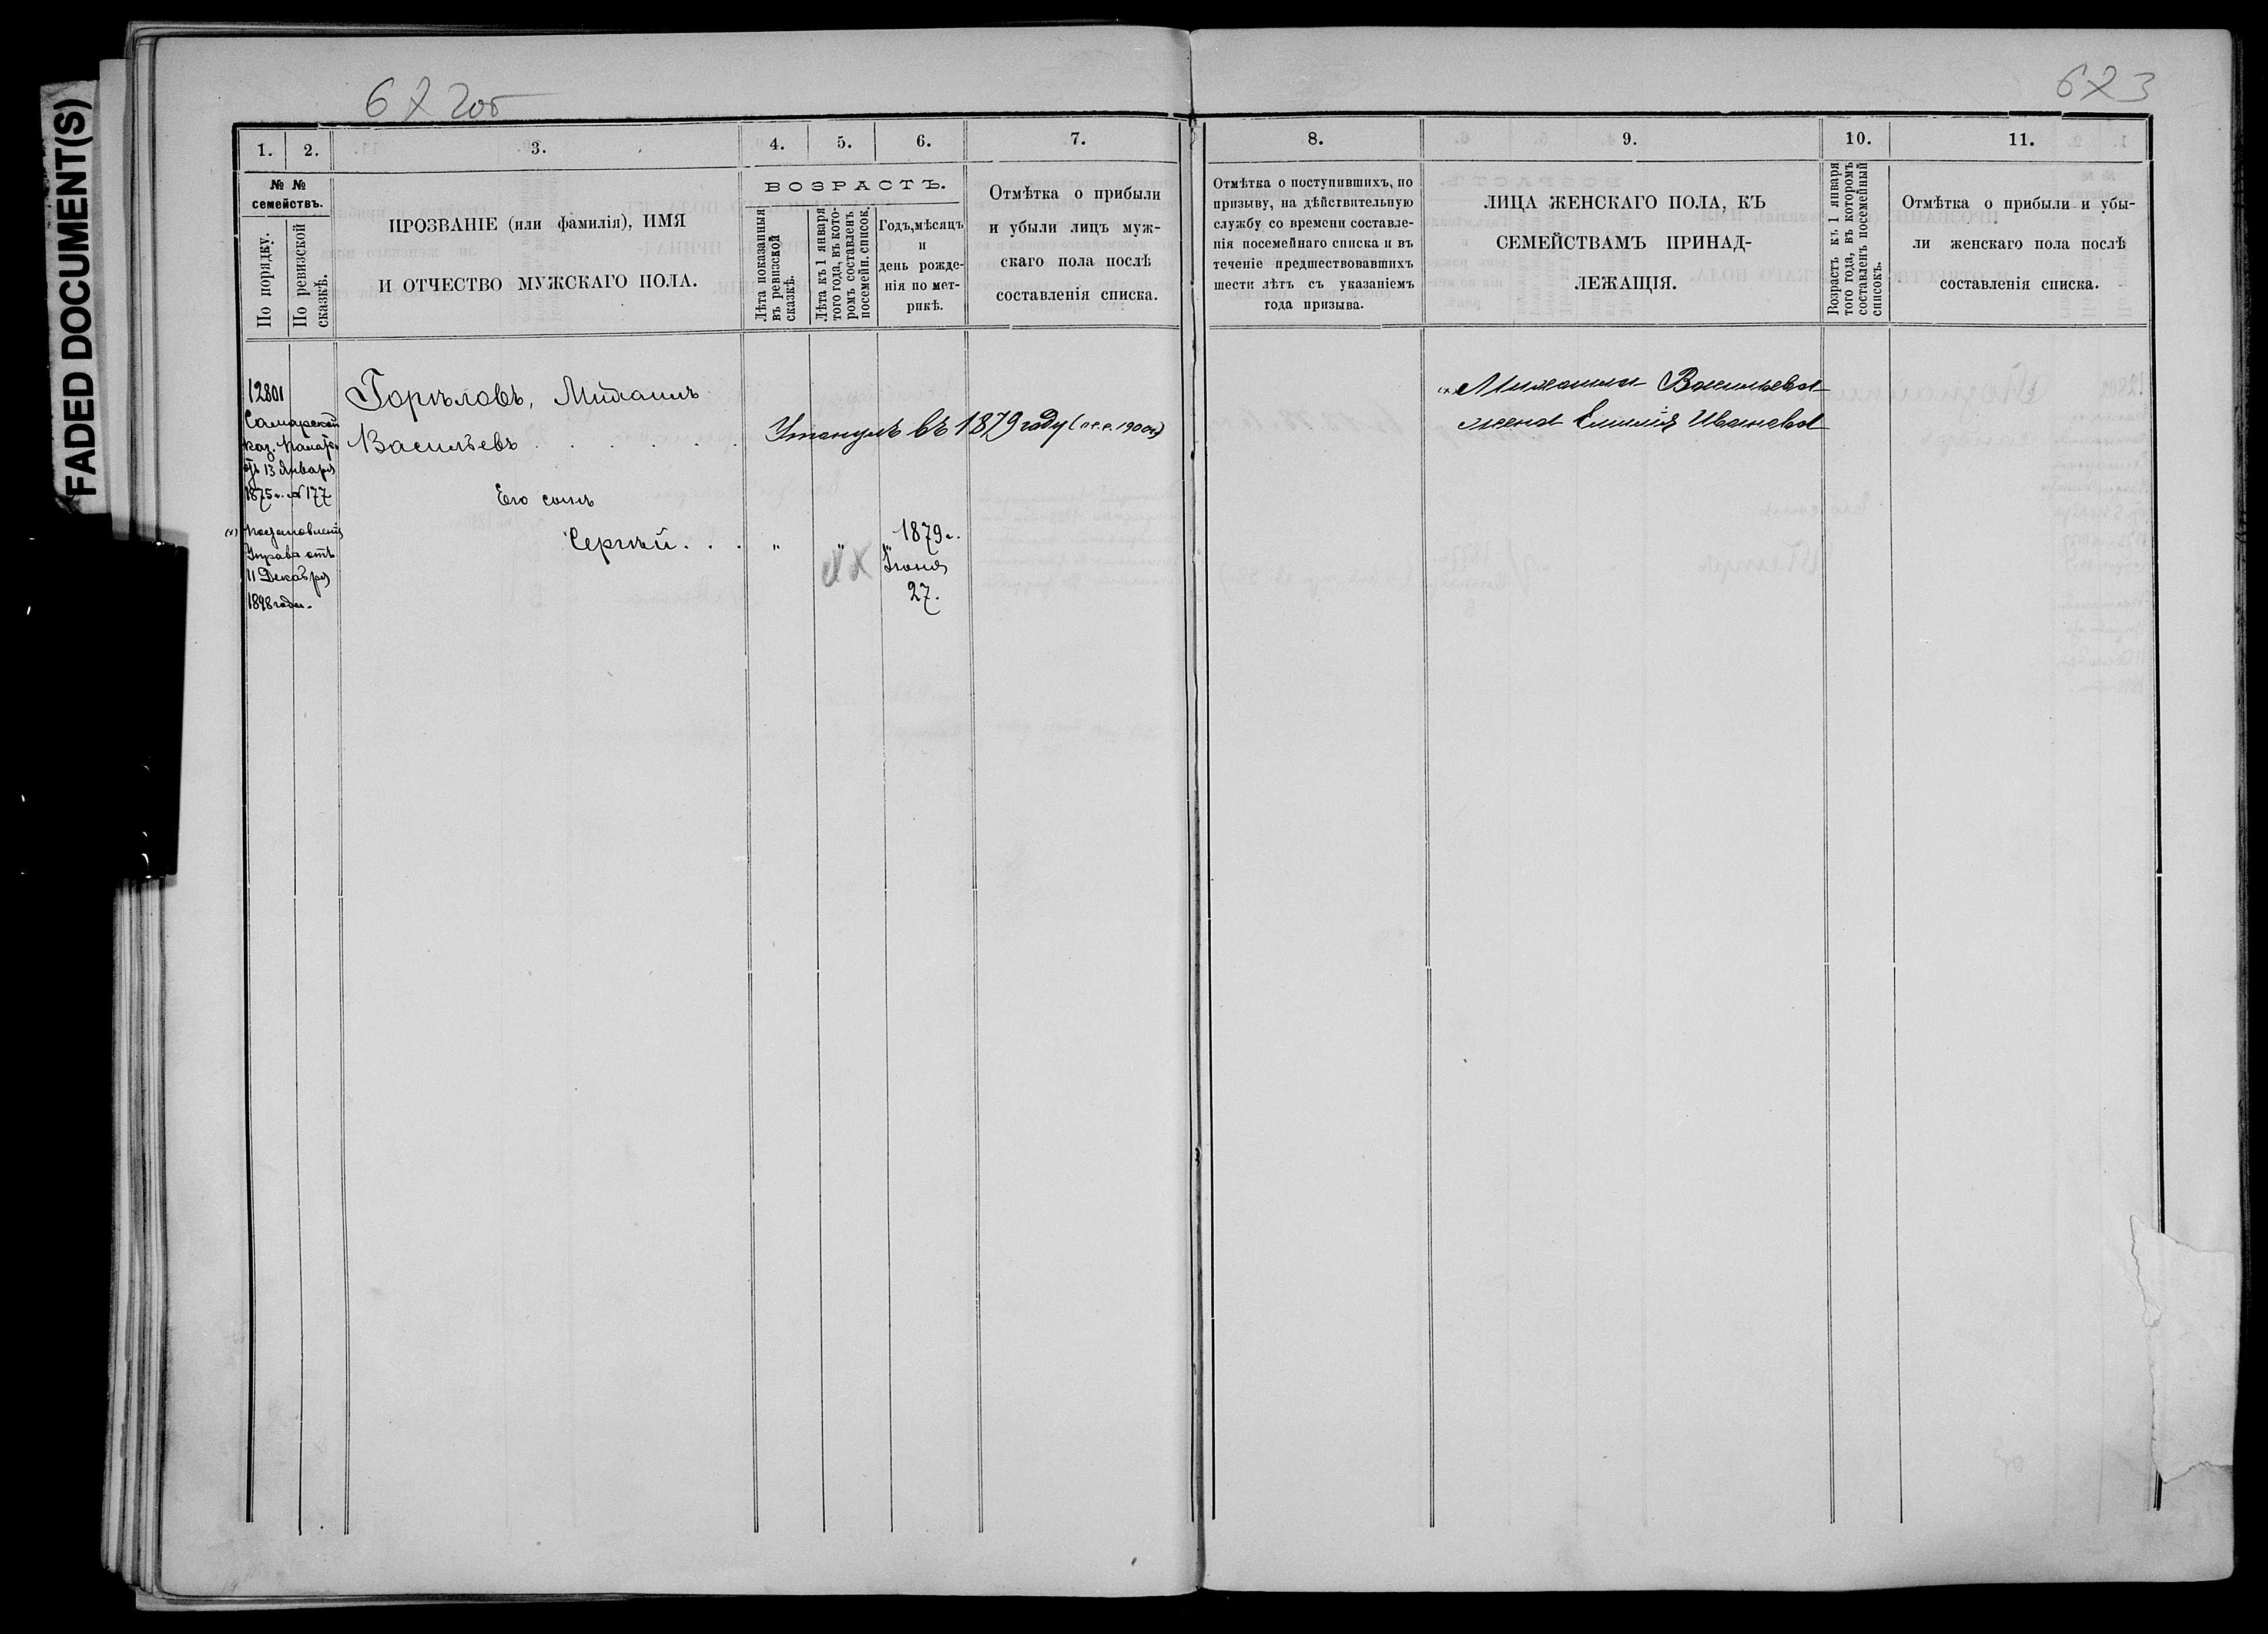 FADED DOCUMENT(S)
622об
623
1. 2. 3. 4. 5. 6. 7.
№ №
семействъ.
По порядку.
По ревизской
сказкѣ.
ПРОЗВАНІЕ (или фамилія), ИМЯ
И ОТЧЕСТВО МУЖСКАГО ПОЛА.
ВОЗРАСТЪ.
Лѣта показанныя
въ ревизской
сказкѣ.
Лѣта къ 1 января
того года, въ кото-
ромъ составленъ
посемейн. список.
Годъ, мѣсяцъ
и
день рожде-
нія по мет-
рикѣ.
Отмѣтка о прибыли
и убыли лицъ муж-
скаго пола послѣ
составленія списка.
12801
Самарской
каз. Палаты
отъ 13 Января
1875 г. № 177
(х) Постановленіе
Управы отъ
11 Декабря
1898 года.
Горѣловъ, Михаилъ
Васильевъ . . . . .
Утонулъ въ 1879 году (п.с.с. 1900г.)
Его сынъ
Сергѣй . . . " "
1879 г.
Іюня
27.
8. 9. 10. 11.
Отмѣтка о поступившихъ, по
призыву, на дѣйствительную
службу со времени составле-
нія посемейнаго списка и въ
теченіе предшествовавшихъ
шести лѣтъ съ указаніемъ
года призыва.
ЛИЦА ЖЕНСКАГО ПОЛА, КЪ
СЕМЕЙСТВАМЪ ПРИНАД-
ЛЕЖАЩІЯ.
Возрастъ къ 1 января
того года, въ которомъ
составленъ посемейный
списокъ.
Отмѣтка о прибыли и убы-
ли женскаго пола послѣ
составленія списка.
(х) Михаила Васильева
жена Емилія Иванова